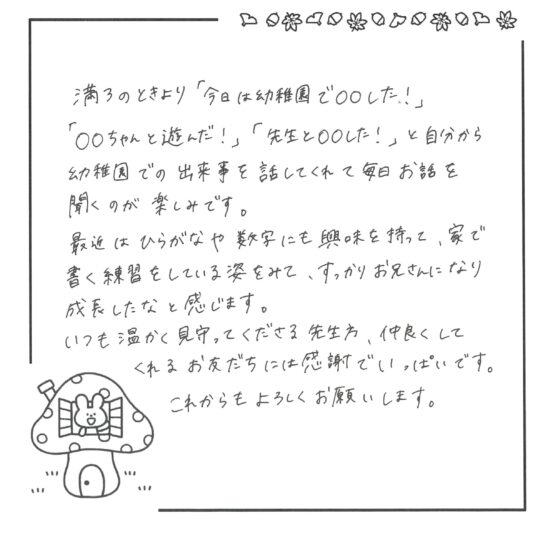 満3のときより「今日は幼稚園で〇〇した!」
「〇〇ちゃんと遊んだ!」「先生と〇〇した!」と自分から
幼稚園での出来事を話してくれて毎日お話を
聞くのが楽しみです。
最近はひらがなや数字にも興味を持って、家で
書く練習をしている姿をみて、すっかりお兄さんになり
成長したなと感じます。
いつも温かく見守ってくださる先生方、仲良くして
くれるお友だちには感謝でいっぱいです。
これからもよろしくお願いします。